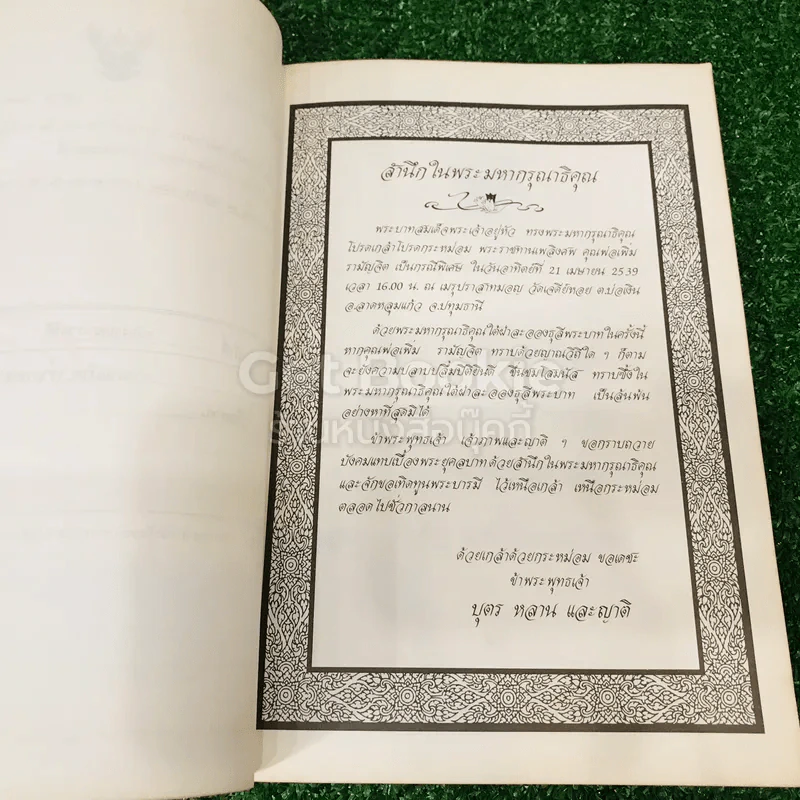 สำนึกในพระมหากรุณาธิคุณ
พระบาทสมเด็จพระเจ้าอยู่หัว ทรงพระมหากรุณาธิคุณ
โปรดเกล้าโปรดกระหม่อม พระราชทานเพลิงศพ คุณพ่อเพิ่ม
รามัญจิต เป็นกรณีพิเศษ ในวันอาทิตย์ที่ 21 เมษายน 2539
เวลา 16.00 น. ณ เมรุปราสาทมอญ วัดเจดีย์หอย ต.บ่อเงิน
อ.ลาดหลุมแก้ว จ.ปทุมธานี
ด้วยพระมหากรุณาธิคุณใต้ฝ่าละอองธุลีพระบาทในครั้งนี้
หากคุณพ่อเพิ่ม รามัญจิต ทราบด้วยญาณวิถีใด ๆ ก็ตาม
จะยังความปลาบปลื้มปิติยินดี ชื่นชมโสมนัส ทราบซึ้งใน
พระมหากรุณาธิคุณใต้ฝ่าละอองธุลีพระบาท เป็นล้นพ้น
อย่างหาที่สุดมิได้
ข้าพระพุทธเจ้า เจ้าภาพและญาติ ๆ ขอกราบถวาย
บังคมแทบเบื้องพระยุคลบาทด้วยสำนึกในพระมหากรุณาธิคุณ
และจักขอเทิดทูนพระบารมี ไว้เหนือเกล้า เหนือกระหม่อม
ตลอดไปชั่วกาลนาน
ด้วยเกล้าด้วยกระหม่อม ขอเดชะ
ข้าพระพุทธเจ้า
บุตร หลาน และญาติ
Got Bookie
ร้านหนังสือบุ๊คกี้